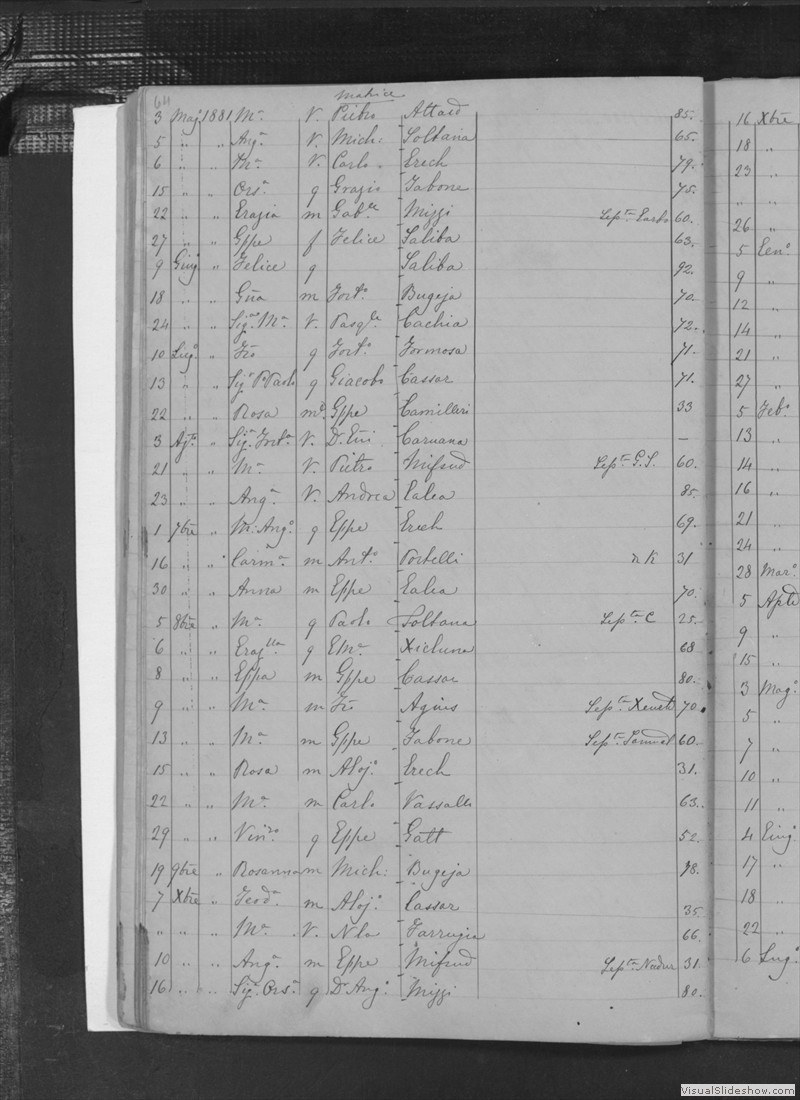 64 Matrice
3 Maj 1881 Ma V. Pietro Attard 85. 16 Xbre
5 „ „ Anga V. Mich: Soltana 65. 18 „
6 „ „ Ma V. Carlo Erech 79. 23 „
15 „ „ Orsa g Grazio Tabone 75. „ „
22 „ „ Grazia m Gable Mizzi 60. 26 „
27 „ „ Gppe f Felice Saliba 63. 5 Gen.o
9 Giug „ Felice g Saliba 92. 9 „
18 „ „ m Forto Bugeja 70. 12 „
24 „ „ Siga Ma V. Pasqle Cachia 72. 14 „
10 Lugo „ g Forto Formosa 71. 21 „
13 „ „ g Giacobo Cassar 71. 27 „
22 „ „ Rosa Gppe Camilleri 33 5 Feb.o
3 Ago „ V. Caruana — 13 „
21 „ „ Ma V. Pietro Mifsud Septa G.S. 60. 14 „
23 „ „ Anga V. Andrea Galea 85. 16 „
1 7bre „ M. Anga g Gppe Erech 69. 21 „
16 „ „ Carma m Anto Portelli 31 24 „
30 „ „ Anna m Gppe Galea 70. 28 Mar.o
5 8bre „ Ma g Paolo Soltana Septa C 25. 5 Aple
6 „ „ g Xicluna 68 9 „
8 „ „ Gppa m Gppe Cassar 80. 15 „
9 „ „ Ma m Fro Agius 70. 3 Mag.o
13 „ „ Ma m Gppe Tabone 60. 5 „
15 „ „ Rosa m Aloj.o Erech 31. 7 „
22 „ „ Ma m Carlo Vassallo 63. 10 „
29 „ „ g Gppe Gatt 52. 11 „
19 9bre „ Rosanna m Mich: Bugeja 78. 4 Giug
7 Xbre „ Teoda m Aloj.o Cassar 35 17 „
„ „ „ Ma V. Nlo Farrugia 66. 18 „
10 „ „ Anga m Gppe Mifsud Septa Nadur 31. 22 „
16 „ „ Siga Orsa g Dr Ang.o Mizzi 80. 6 Lug.o
VisualSlideshow.com